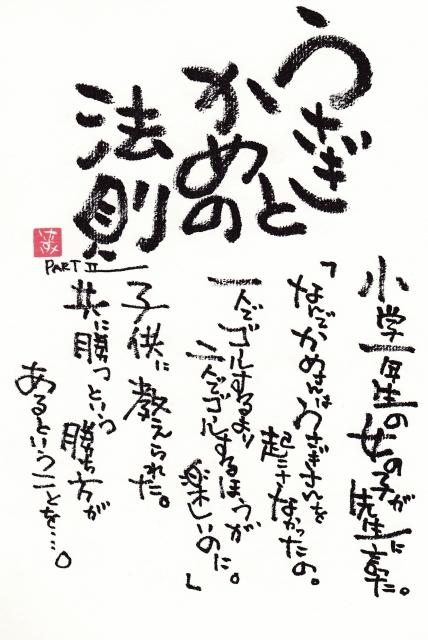 うさぎと
かめの
法則
PART II
小学一年生の女の子が先生に言った。
「なんでかめさんはうさぎさんを
起こさなかったの。
一人でゴールするより
二人でゴールするほうが
楽しいのに。」
子供に教えられた。
共に勝つという
勝ち方が
あるということを…。